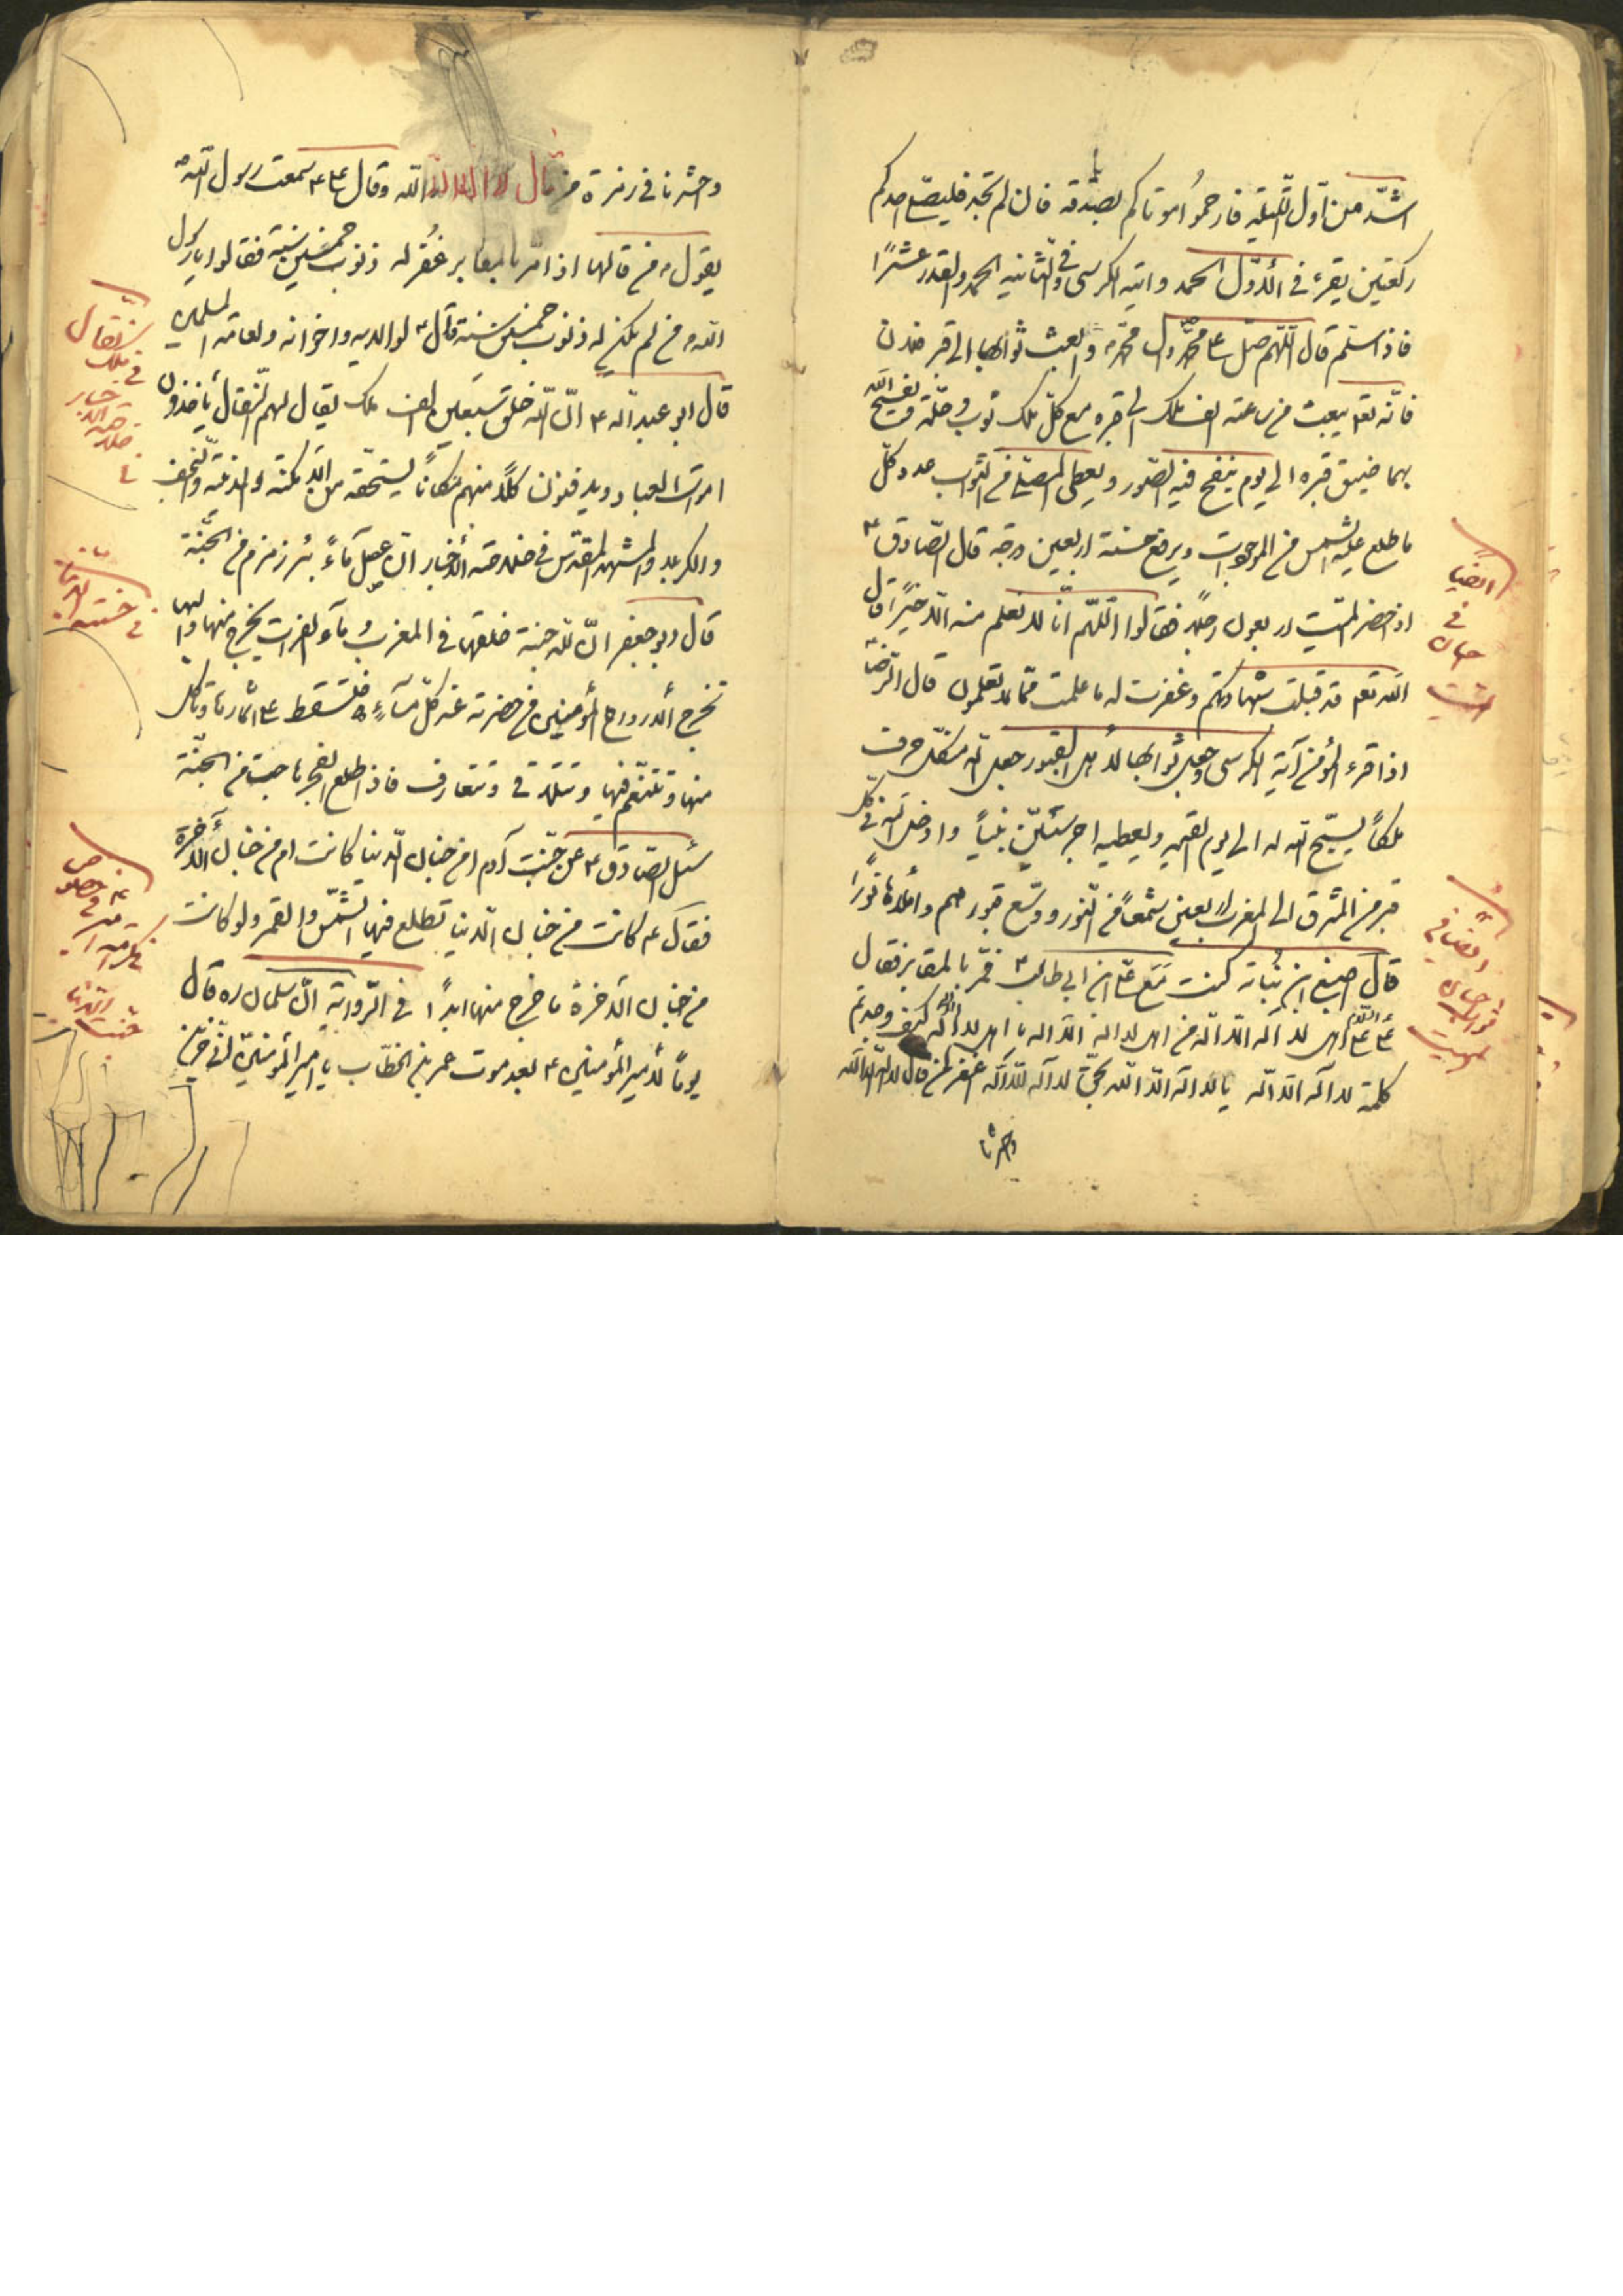 اشدّ من اوّل الليلة فارحموا موتاكم بالصدقة فان لم تجد فليصلّ احدكم
ركعتين يقرء في الأوّل الحمد واية الكرسى وفي الثانية الحمد والقدر عشرًا
فاذا سلّم قال اللّهم صلّ على محمّد وآل محمّد وابعث ثوابها الى قبر فلان
فانّه تعا يبعث من ساعته الف ملك الى قبره مع كلّ ملك ثوب وحلّة ويفسح الله
بهما ضيق قبره الى يوم ينفخ فيه الصّور ويعطى المصلّي من الثواب عدد كلّ
ما طلع عليه الشمس من الموجودات ويرفع حسنة اربعين درجة قال الصّادق ع
اذا حضر الميّت اربعون رجلا فقالوا اللّهم انّا لا نعلم منه الّا خيرًا قال
الله تعا قد قبلت شهادتكم وغفرت له ما علمت ممّا لا تعلمون قال الرّضا
اذا قرء المؤمن آية الكرسى وجعل ثوابها لأهل القبور جعل الله من كلّ حرف
ملكًا يسبّح الله له الى يوم القيمة ويعطيه اجر ستّين نبيًا وادخل الله في كل
قبر من المشرق الى المغرب اربعين شمعًا من النّور ووسّع قبورهم وأملاءها نورًا
قال اصبغ ابن نباتة كنت مع علي ابن ابي طالب ع فمرّ بالمقابر فقال
ع السّلام على اهل لا اله الّا الله من اهل لا اله الّا الله يا اهل لا اله الّا الله كيف وجدتم
كلمة لا اله الّا الله يا لا اله الّا الله بحقّ لا اله الّا الله اغفر لمن قال لا اله الّا الله
واحشرنا
ايضًا
في
احسان
الميّت
ايضًا في
ثواب احسان
الميت
واحشرنا في زمرة من قال لا اله الّا الله وقال علي ع سمعت رسول اللّه ص
يقول من قالها اذا مرّ بالمقابر غُفر له ذنوب خمسين سنة فقالوا يا رسول
الله من لم يكن له ذنوب خمسين سنة قال ع لوالديه واخوانه ولعامّة المسلمين
قال ابو عبد الله ع انّ اللّه خلق سبعين الف ملك يقال لهم النّقال يأخذون
اموات العباد ويدفنون كلًا منهم مكانًا يستحقّه من الأمكنة والازمنة والنجف
والكربلا والمشهد المقدّس في خلاصة الأخبار انّ علي ماءً بئر زمزم من الجنّة
قال ابو جعفر انّ للّه جنة خلقها في المغرب وماء الفرات يخرج منها واليها
تخرج الأرواح المؤمنين من حضرته عند كلّ مسآءٍ فتسقط على اثمارها وتأكل
منها وتتنعّم فيها وتتلاقى وتتعارف فاذا طلع الفجر هاجت من الجنّة
سئل الصّادق ع عن جنّت آدم امن جنان الدّنيا كانت ام من جنان الآخرة
فقال ع كانت من جنان الدّنيا تطلع فيها الشّمس والقمر ولو كانت
من جنان الآخرة ما خرج منها ابدًا في الرّواية انّ سلمان ره قال
يومًا لأمير المؤمنين ع بعد موت عمر بن الخطّاب يا امير المؤمنين
نقال
في ملك
خلاصة الاخبار
في جنّة
جنّت الدّنيا